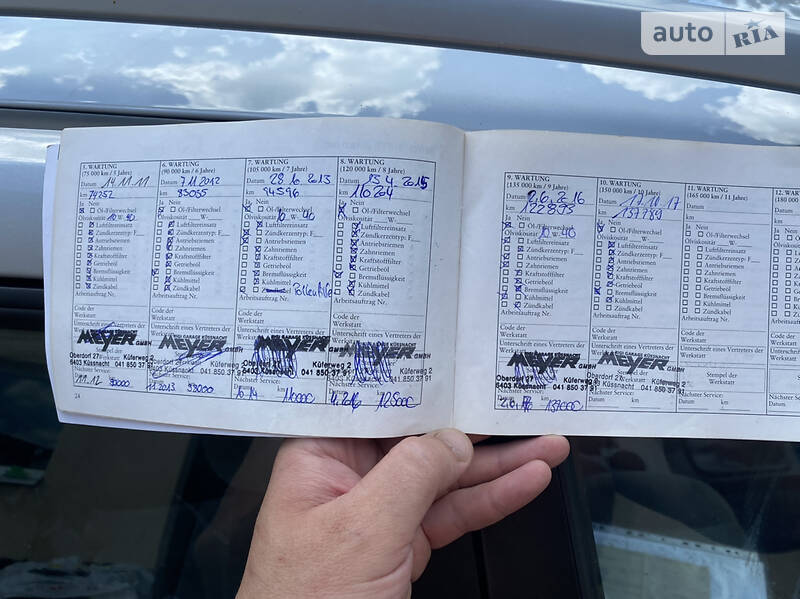 auto RIA
5. WARTUNG
(75 000 km / 5 Jahre)
Datum 14.11.11
km 74252
Ja Nein
Öl-/Filterwechsel
Ölviskosität W-
Luftfiltereinsatz
Zündkerzentyp: F
Antriebsriemen
Zahnriemen
Kraftstofffilter
Getriebeöl
Bremsflüssigkeit
Kühlmittel
Zündkabel
Arbeitsauftrag Nr.
Code der
Werkstatt
Unterschrift eines Vertreters der
MEYER
Oberdorf 27
6403 Küssnacht
Nächster Service:
11.12 90000
24
6. WARTUNG
(90 000 km / 6 Jahre)
Datum 7.11.2012
km 83055
Ja Nein
Öl-/Filterwechsel
Ölviskosität W-
Luftfiltereinsatz
Zündkerzentyp: F
Antriebsriemen
Zahnriemen
Kraftstofffilter
Getriebeöl
Bremsflüssigkeit
Kühlmittel
Zündkabel
Arbeitsauftrag Nr.
Code der
Werkstatt
Unterschrift eines Vertreters der
MEYER GMBH
Küferweg 2
041 850 37 91
Nächster Service:
11.2013 98000
7. WARTUNG
(105 000 km / 7 Jahre)
Datum 28.6.2013
km 94596
Ja Nein
Öl-/Filterwechsel
Ölviskosität 10 W- 40
Luftfiltereinsatz
Zündkerzentyp: F
Antriebsriemen
Zahnriemen
Kraftstofffilter
Getriebeöl
Bremsflüssigkeit
Kühlmittel
Pollenfilter
Arbeitsauftrag Nr.
Code der
Werkstatt
Unterschrift eines Vertreters der
MEYER
Oberdorf 27
6403 Küssnacht
Nächster Service:
8. WARTUNG
(120 000 km / 8 Jahre)
Datum 13.4.2015
km 110264
Ja Nein
Öl-/Filterwechsel
Ölviskosität W-
Luftfiltereinsatz
Zündkerzentyp: F
Antriebsriemen
Zahnriemen
Kraftstofffilter
Getriebeöl
Bremsflüssigkeit
Kühlmittel
Zündkabel
Arbeitsauftrag Nr.
Code der
Werkstatt
Unterschrift eines Vertreters der
MEYER GMBH
Küferweg 2
041 850 37 91
Nächster Service:
4.2016 125000
9. WARTUNG
(135 000 km / 9 Jahre)
Datum 2.6.2016
km 122895
Ja Nein
Öl-/Filterwechsel
Ölviskosität 10 W- 40
Luftfiltereinsatz
Zündkerzentyp: F
Antriebsriemen
Zahnriemen
Kraftstofffilter
Getriebeöl
Bremsflüssigkeit
Kühlmittel
Zündkabel
Arbeitsauftrag Nr.
Code der
Werkstatt
Unterschrift eines Vertreters der
MEYER GMBH
Oberdorf 27 Küferweg 2
6403 Küssnacht 041 850 37 91
Nächster Service:
Datum km 137000
10. WARTUNG
(150 000 km / 10 Jahre)
Datum 17.11.17
km 137789
Ja Nein
Öl-/Filterwechsel
Ölviskosität W-
Luftfiltereinsatz
Zündkerzentyp: F
Antriebsriemen
Zahnriemen
Kraftstofffilter
Getriebeöl
Bremsflüssigkeit
Kühlmittel
Zündkabel
Arbeitsauftrag Nr.
Code der
Werkstatt
Unterschrift eines Vertreters der
MEYER GMBH
Oberdorf 27 Küferweg 2
6403 Küssnacht 041 850 37 91
Nächster Service:
Datum km
11. WARTUNG
(165 000 km / 11 Jahre)
Datum
km
Ja Nein
Öl-/Filterwechsel
Ölviskosität W-
Luftfiltereinsatz
Zündkerzentyp: F
Antriebsriemen
Zahnriemen
Kraftstofffilter
Getriebeöl
Bremsflüssigkeit
Kühlmittel
Zündkabel
Arbeitsauftrag Nr.
Code der
Werkstatt
Unterschrift eines Vertreters der
Werkstatt
Stempel der
Werkstatt
Nächster Service:
Datum km
12. WART
(180 000
Datum
km
Ja Nein